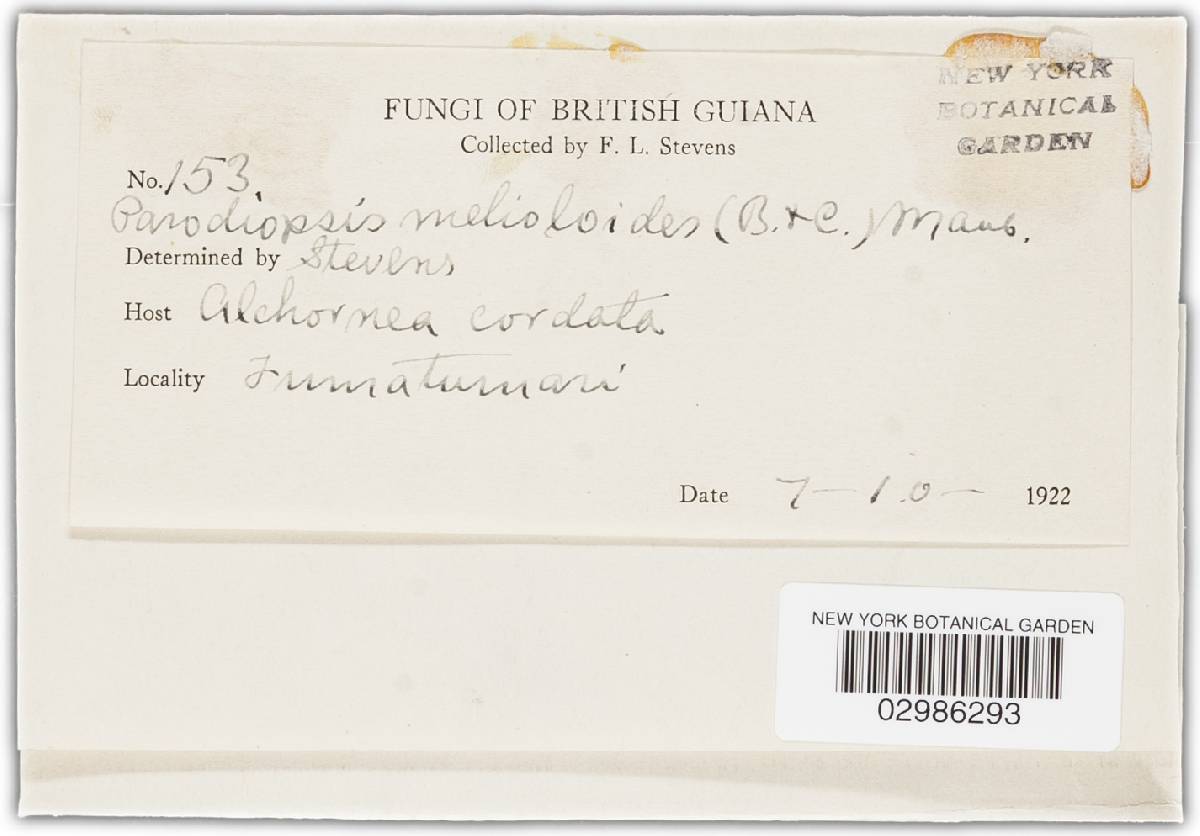 NEW YORK
BOTANICAL
GARDEN
FUNGI OF BRITISH GUIANA
Collected by F. L. Stevens
No. 153.
Parodiopsis melioloides (B. & C.) Maub.
Determined by Stevens
Host Alchornea cordata
Locality Tumatumari
Date 7-10- 1922
NEW YORK BOTANICAL GARDEN
02986293